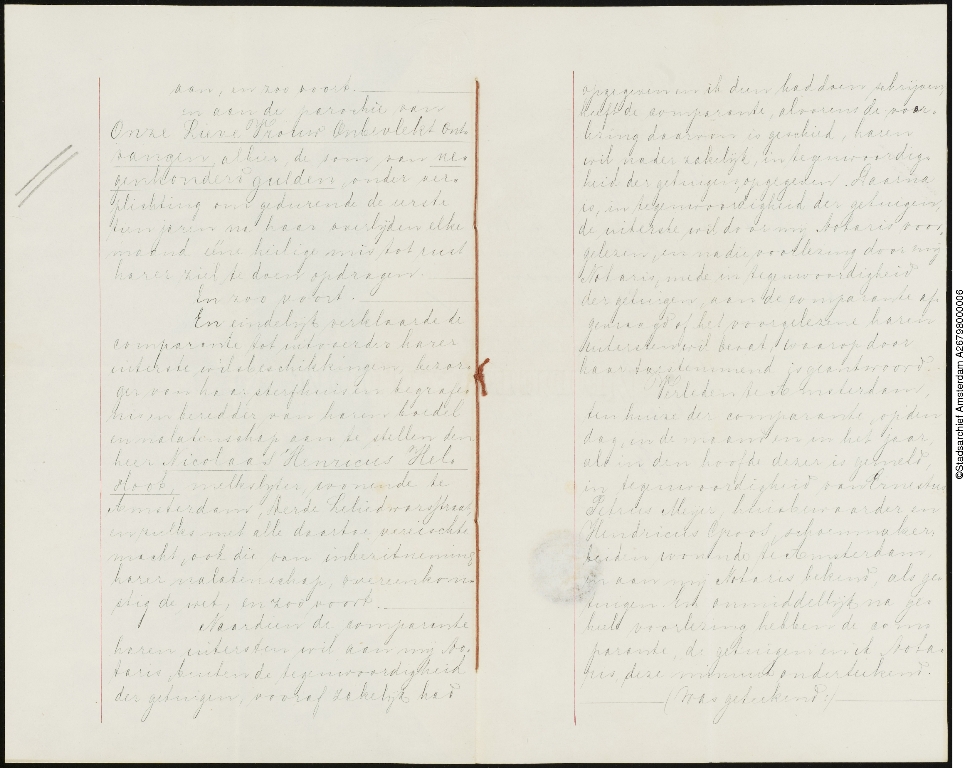 aan, en zoo voort.
en aan de parochie van
Onze Lieve Vrouw Onbevlekt Ont-
vangen, alhier, de som van ne-
genhonderd gulden, onder ver-
plichting om gedurende de eerste
tien jaren na haar overlijden elke
maand eene heilige mis tot rust
harer ziel te doen opdragen.
En zoo voort.
En eindelijk verklaarde de
comparante tot uitvoerder harer
uiterste wilsbeschikkingen, bezor-
ger van haar sterfhuis en begrafe-
nis en beredder van haren boedel
en nalatenschap aan te stellen den
heer Nicolaas Henricus Hel-
sloot, melkslyter, wonende te
Amsterdam, derde Leliedwarsstraat,
en zulks met alle daartoe vereischte
macht, ook die van inbezitneming
harer nalatenschap, overeenkom-
stig de wet, en zoo voort.
Naardien de comparante
haren uitersten wil aan my No-
taris, buiten de tegenwoordigheid
der getuigen, vooraf zakelijk had
opgegeven en ik dien had doen schrijven
heeft de comparante, alvorens de voor-
lezing daarvan is geschied, haren
wil nader zakelijk, in tegenwoordig-
heid der getuigen, opgegeven. Daarna
is, in tegenwoordigheid der getuigen,
de uiterste wil door my Notaris voor-
gelezen, en na die voorlezing door my
Notaris, mede in tegenwoordigheid
der getuigen, aan de comparante af-
gevraagd of het voorgelezene haren
uitersten wil bevat, waarop door
haar toestemmend is geantwoord.
Verleden te Amsterdam,
ten huize der comparante, op den
dag, in de maand en in het jaar,
als in den hoofde dezer is gemeld,
in tegenwoordigheid van Ernestus
Petrus Meyer, huisbewaarder en
Hendricus schoenmaker,
beiden wonende te Amsterdam,
en aan my Notaris bekend, als ge-
tuigen. En onmiddellijk na ge-
hele voorlezing hebben de com-
parante, de getuigen en ik Nota-
ris, deze minuut onderteekend.
(Was geteekend:)
©Stadsarchief Amsterdam A26798000006